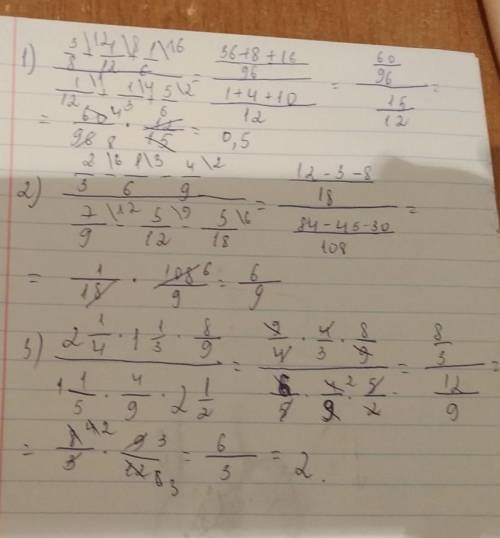 1) (3/8\12 + 1/12\8 + 1/6\16) / (1/12\1 + 1/3\4 + 5/6\2) = ((36+8+16)/96) / ((1+4+10)/12) = (60/96) / (15/12) =
= 60/96 · 12/15 = 0,5
2) (2/3\6 - 1/6\3 - 4/9\2) / (7/9\12 - 5/12\9 - 5/18\6) = ((12-3-8)/18) / ((84-45-30)/108) =
= 1/18 · 108/9 = 6/9
3) (2 1/4 · 1 1/3 · 8/9) / (1 1/5 · 4/9 · 2 1/2) = (9/4 · 4/3 · 8/9) / (6/5 · 4/9 · 5/2) = (8/3) / (12/9) =
= 8/3 · 9/12 = 6/3 = 2.